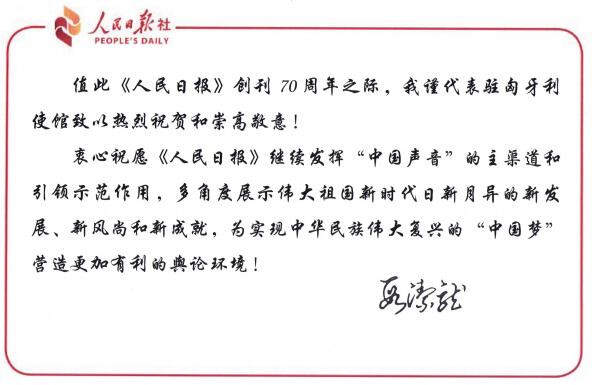 人民日报社
PEOPLE'S DAILY
值此《人民日报》创刊70周年之际，我谨代表驻匈牙利
使馆致以热烈祝贺和崇高敬意！
衷心祝愿《人民日报》继续发挥“中国声音”的主渠道和
引领示范作用，多角度展示伟大祖国新时代日新月异的新发
展、新风尚和新成就，为实现中华民族伟大复兴的“中国梦”
营造更加有利的舆论环境！
段洁龙